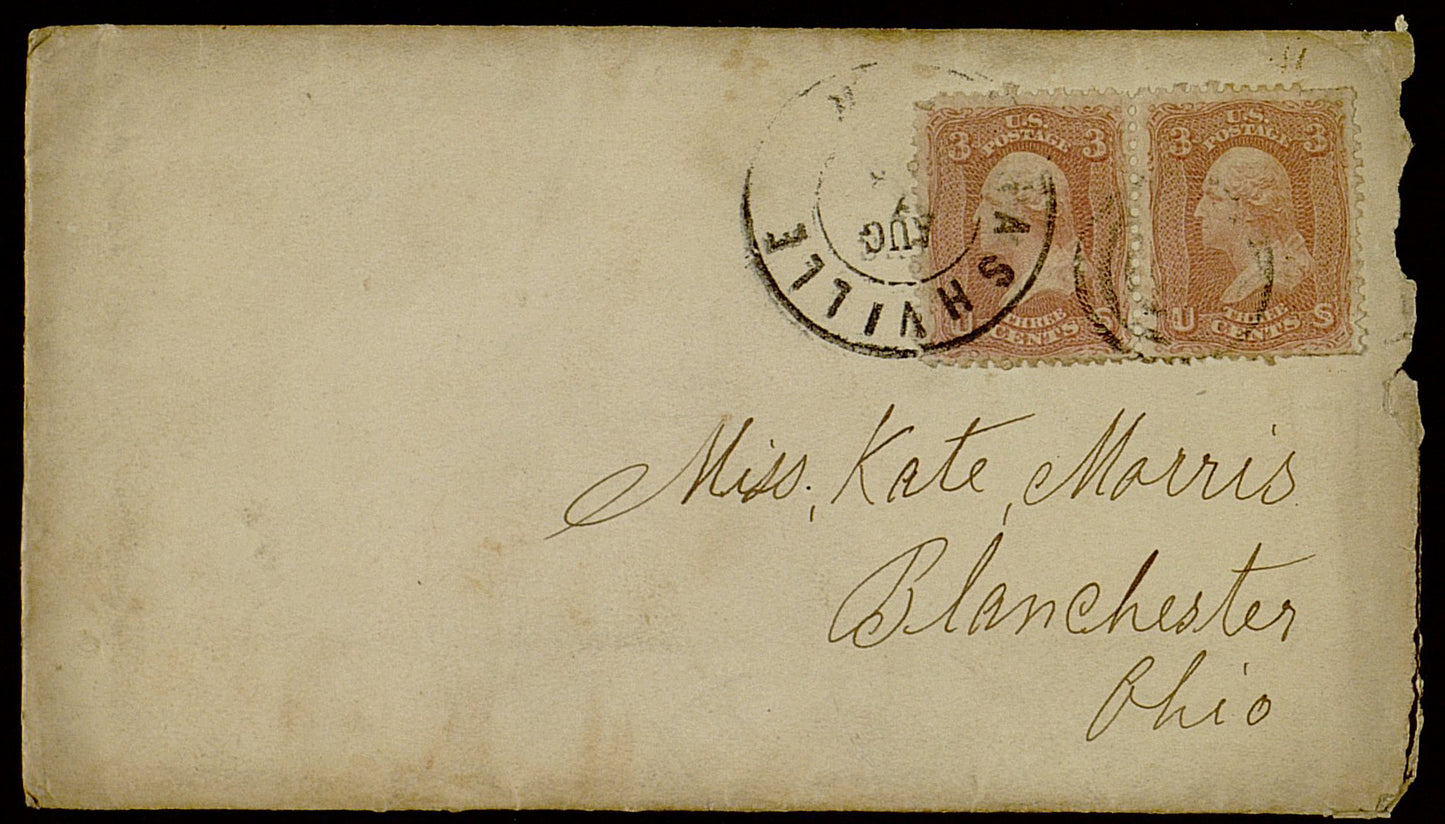 3 U.S. 3
POSTAGE
U THREE S
CENTS
3 U.S. 3
POSTAGE
U THREE S
CENTS
ASHVILLE
AUG
Miss, Kate, Morris
Blanchester
Ohio